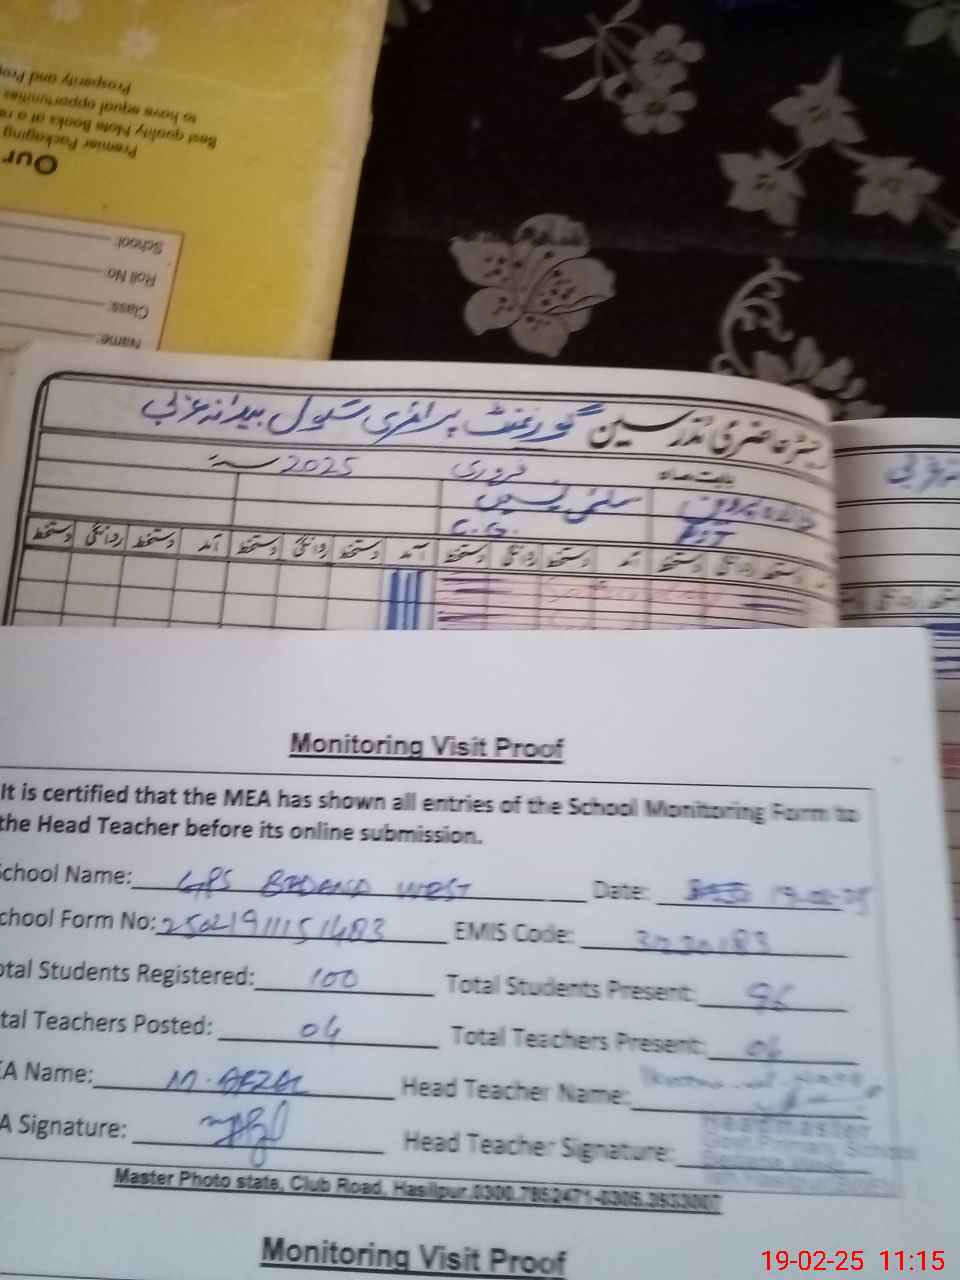 Our
Premier Packaging
Best quality Note Books at a
to have equal opportunities
Prosperity and
School:
Roll No:
Class:
Name:
رجسٹر حاضری مدرسین گورنمنٹ پرائمری سکول بیدانہ غربی
بابت ماہ فروری 2025
C.G.
آمد دستخط روانگی دستخط آمد دستخط روانگی دستخط آمد دستخط روانگی دستخط
Saturday
Monitoring Visit Proof
It is certified that the MEA has shown all entries of the School Monitoring Form to
the Head Teacher before its online submission.
School Name: GPS BEDANA WEST Date: 19-02-25
chool Form No: 25021911151483 EMIS Code:
otal Students Registered: 100 Total Students Present: 96
tal Teachers Posted: 04 Total Teachers Present: 04
EA Name: M. AFZAL Head Teacher Name:
A Signature: Head Teacher Signature:
Headmaster
Govt. Primary School
Master Photo state, Club Road, Hasilpur.0300.7852471-0306.3933007
Monitoring Visit Proof
19-02-25 11:15